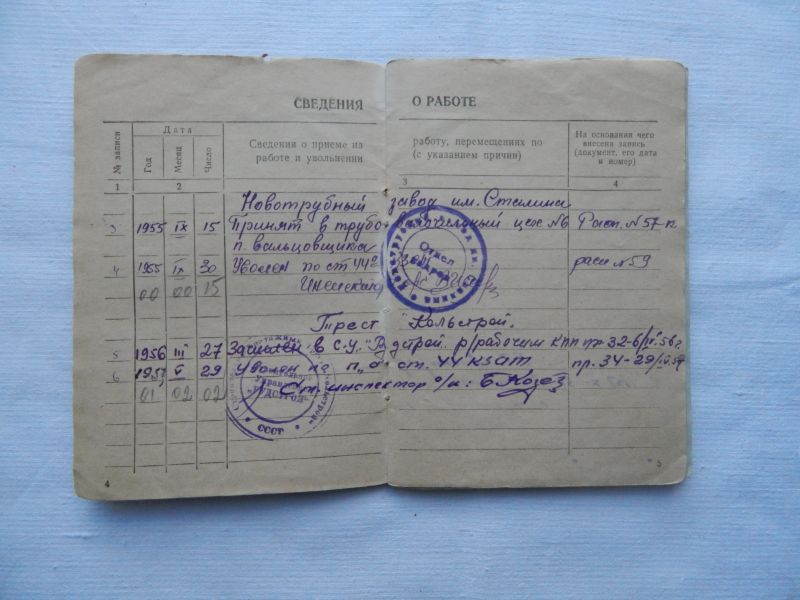 СВЕДЕНИЯ О РАБОТЕ
№ записи
Дата
Год
Месяц
Число
Сведения о приеме на работу, перемещениях по
работе и увольнении (с указанием причин)
На основании чего
внесена запись
(документ, его дата
и номер)
1 2 3 4
Новотрубный завод им. Сталина
3 1955 IX 15 Принят в трубо цех №6 Расп. №57-к
п. вальцовщика
4 1955 IX 30 Уволен по ст 44 расп №59
00 00 15
Отдел
кадров
Трест "Кольстрой"
5 1956 III 27 Зачислен в с.у. "Рудстрой" р/рабочим пр 32-б
6 V 29 Уволен по п. ст. 44 КЗАТ пр. 34-29
01 02 02 Ст. инспектор о/к:
СССР
4
5